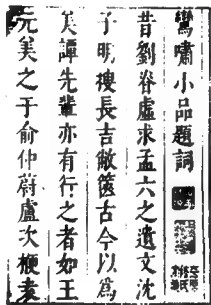 鸞嘯小品題詞
昔劉眘虛求孟六之遺文沈
子明搜長吉敝篋古今以為
美譚先輩亦有行之者如王
元美之于俞仲蔚盧次楩袁